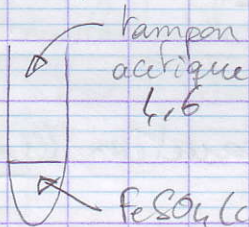 tampon
acétique
4,6
FeSO4 (c